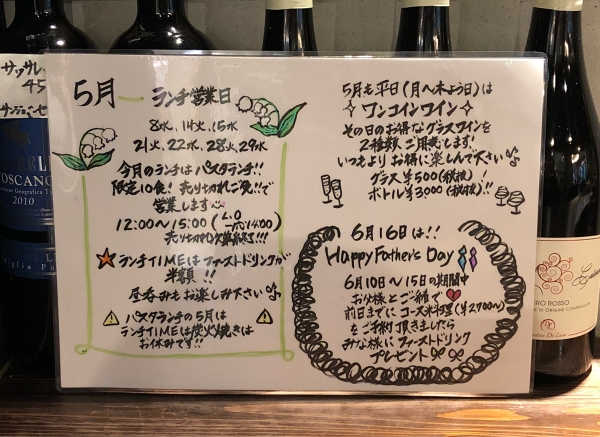 5月 ランチ営業日
8水、14火、15水
21火、22水、28火、29水
今月のランチは パスタランチ!!
限定10食! 売り切れご免!!で
営業します
12:00〜15:00 (L.O 14:00)
売り切れ次第終了!!!
ランチTIMEはファーストドリンクが
半額!!
昼呑みもお楽しみ下さい♪
パスタランチの5月は
ランチTIMEは炭火焼きは
お休みです!!
5月も平日(月〜木よう日)は
ワンコインワイン
その日のお得なグラスワインを
2種類ご用意します!
いつもよりお得に楽しんで下さい♪
グラス ¥500(税抜)!
ボトル ¥3,000(税抜)!!
6月16日は!!
Happy Father's Day
6月10日〜15日の期間中
お父様とご一緒で
前日までにコース料理(¥2,700〜)
をご予約頂きましたら
みな様にファーストドリンク
プレゼント
サッサレ
45
TOSCANO
2010
CIRÒ ROSSO